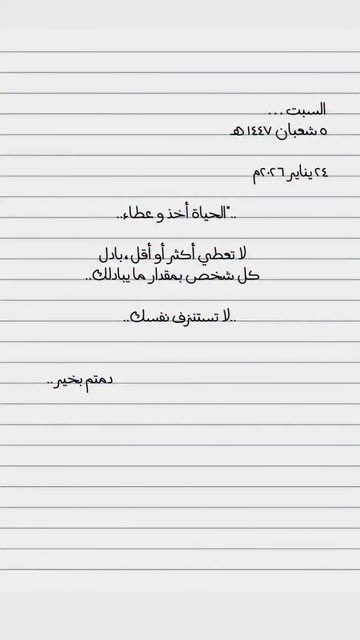 السبت ...
٥ شعبان ١٤٤٧ هـ
٢٤ يناير ٢٠٢٦م
.."الحياة أخذ و عطاء..
لا تعطي أكثر أو أقل ، بادل
كل شخص بمقدار ما يبادلك..
..لا تستنزف نفسك..
دمتم بخير..